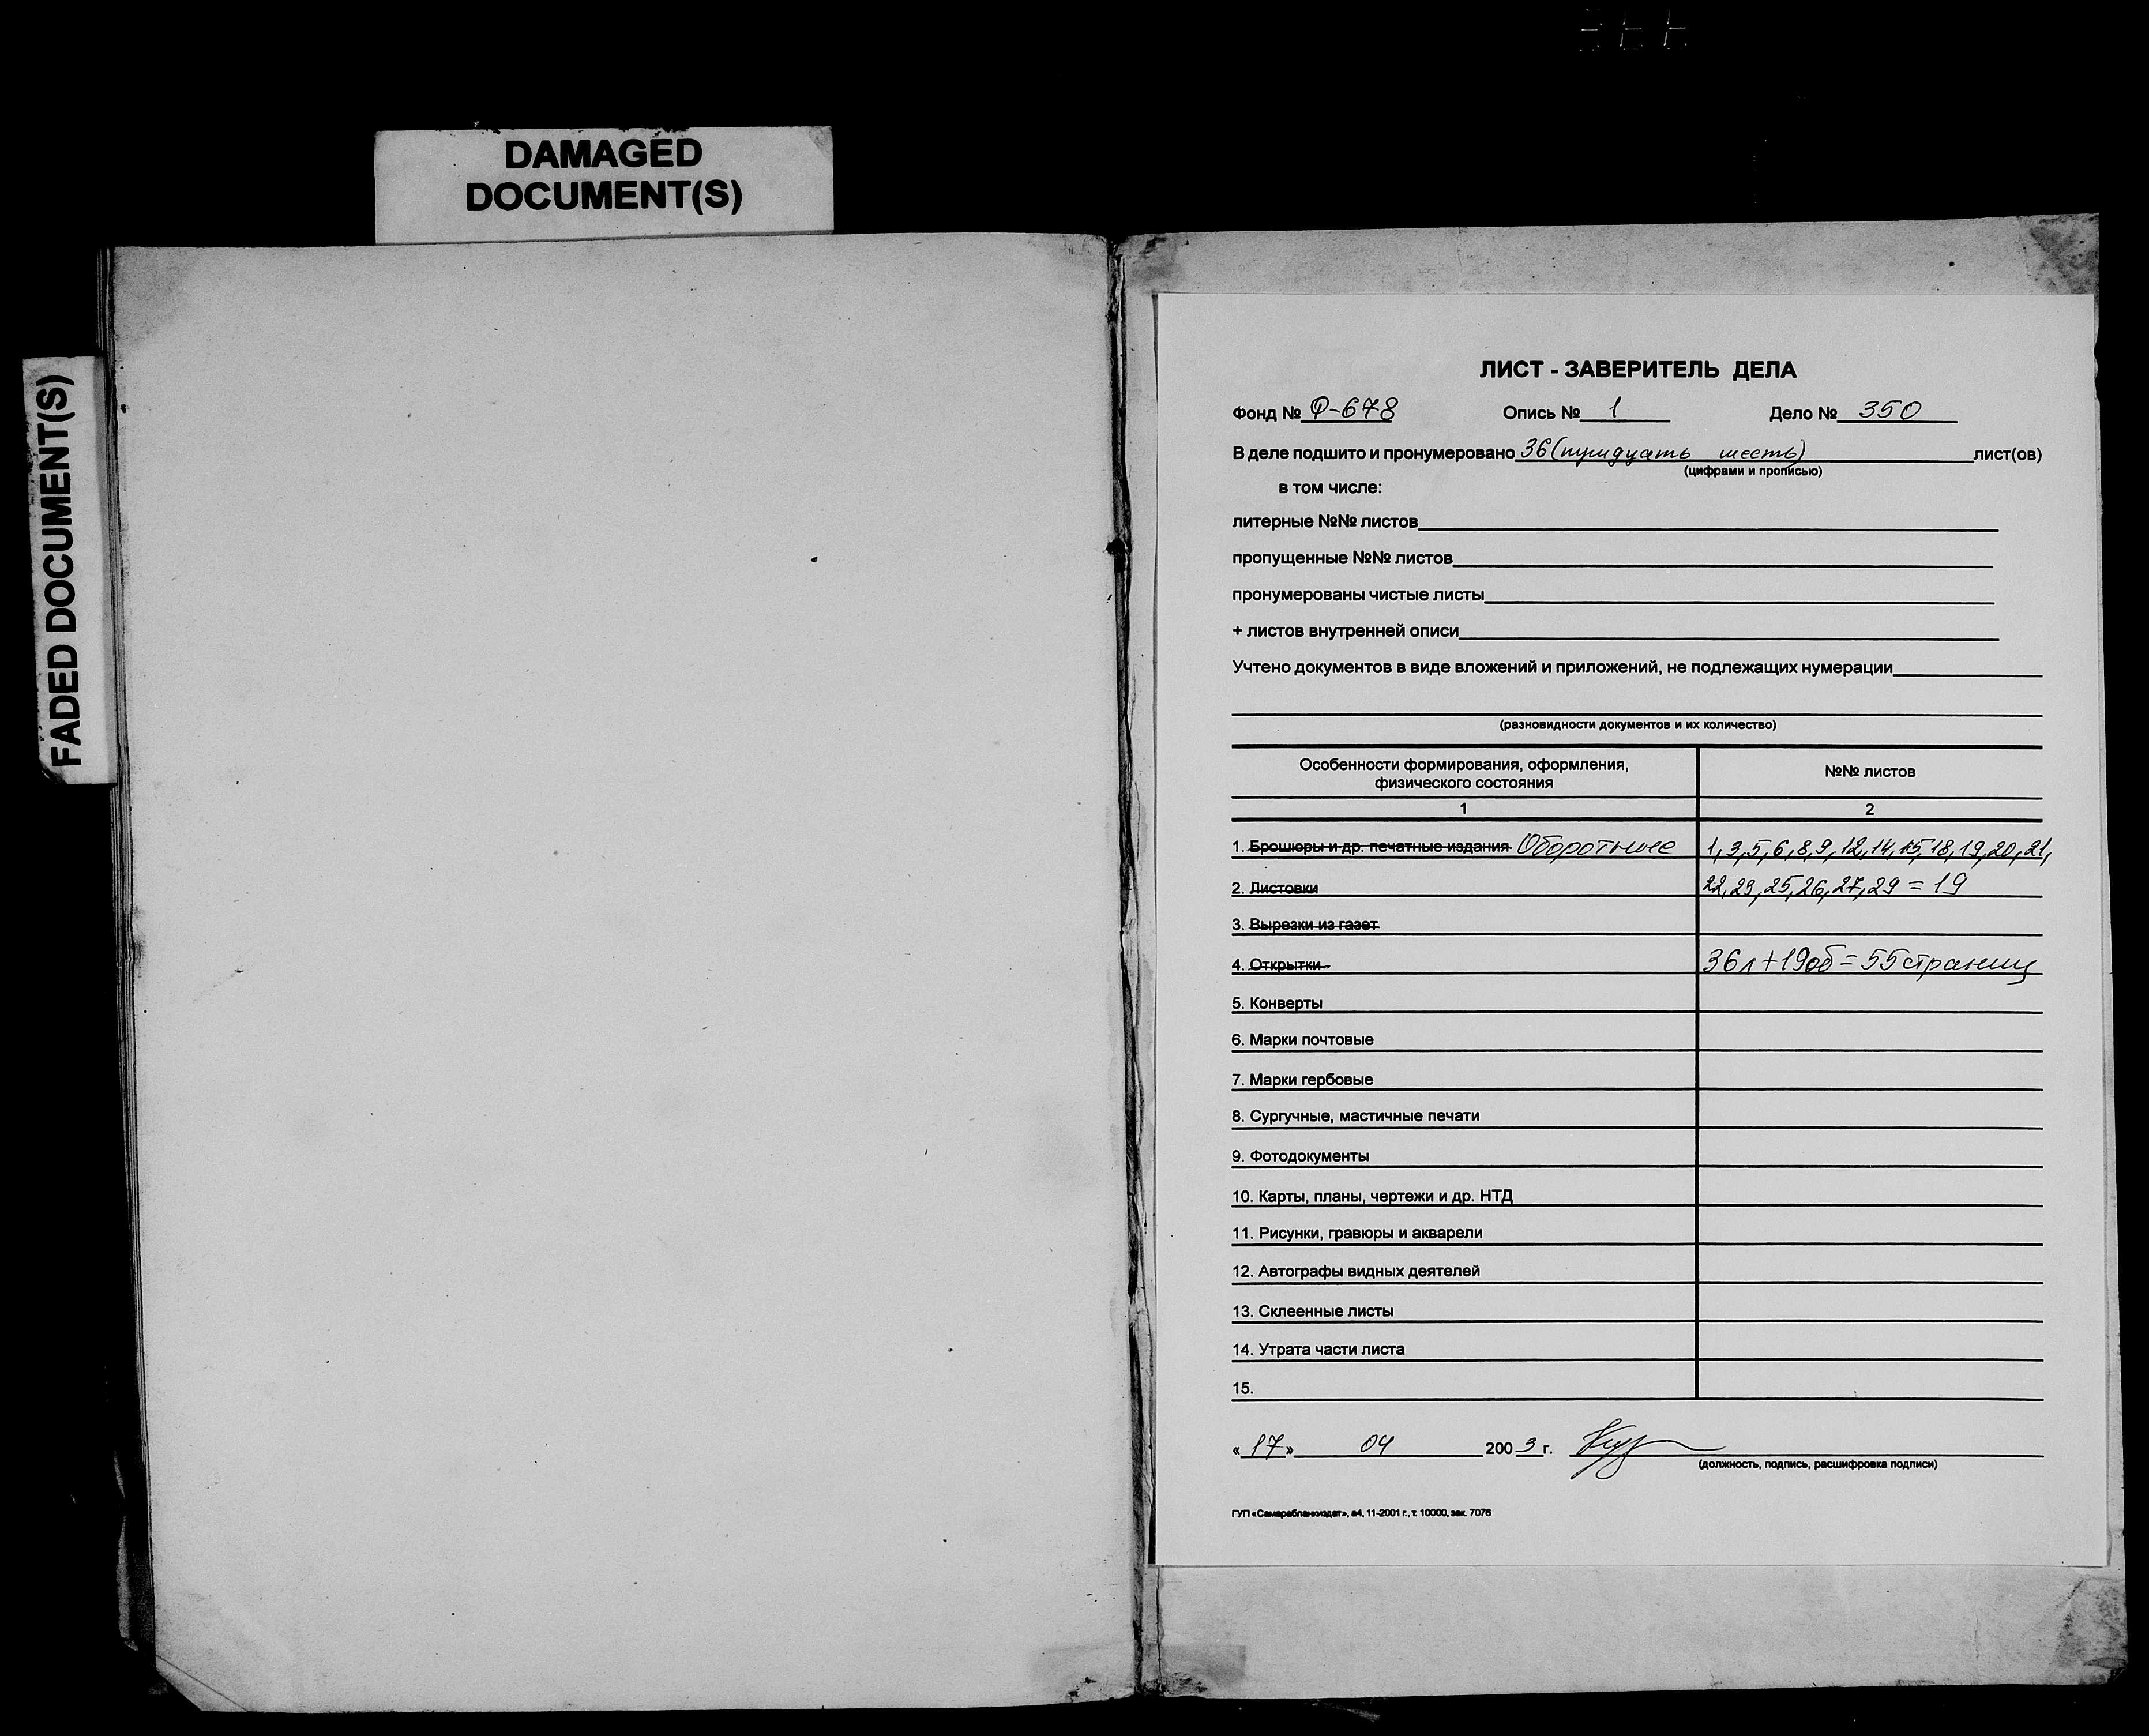 DAMAGED
DOCUMENT(S)
FADED DOCUMENT(S)
ЛИСТ - ЗАВЕРИТЕЛЬ ДЕЛА
Фонд № Ф-678 Опись № 1 Дело № 350
В деле подшито и пронумеровано 36 (тридцать шесть) лист(ов)
(цифрами и прописью)
в том числе:
литерные №№ листов
пропущенные №№ листов
пронумерованы чистые листы
+ листов внутренней описи
Учтено документов в виде вложений и приложений, не подлежащих нумерации
(разновидности документов и их количество)
Особенности формирования, оформления,
физического состояния
№№ листов
1 2
1. Брошюры и др. печатные издания Оборотные 1,3,5,6,8,9,12,14,15,18,19,20,21,
2. Листовки 22,23,25,26,27,29 = 19
3. Вырезки из газет
4. Открытки 36л+19об=55страниц
5. Конверты
6. Марки почтовые
7. Марки гербовые
8. Сургучные, мастичные печати
9. Фотодокументы
10. Карты, планы, чертежи и др. НТД
11. Рисунки, гравюры и акварели
12. Автографы видных деятелей
13. Склеенные листы
14. Утрата части листа
15.
«17» 04 2003 г.
(должность, подпись, расшифровка подписи)
ГУП «Самарабланкиздат», а4, 11-2001 г., т. 10000, зак. 7076